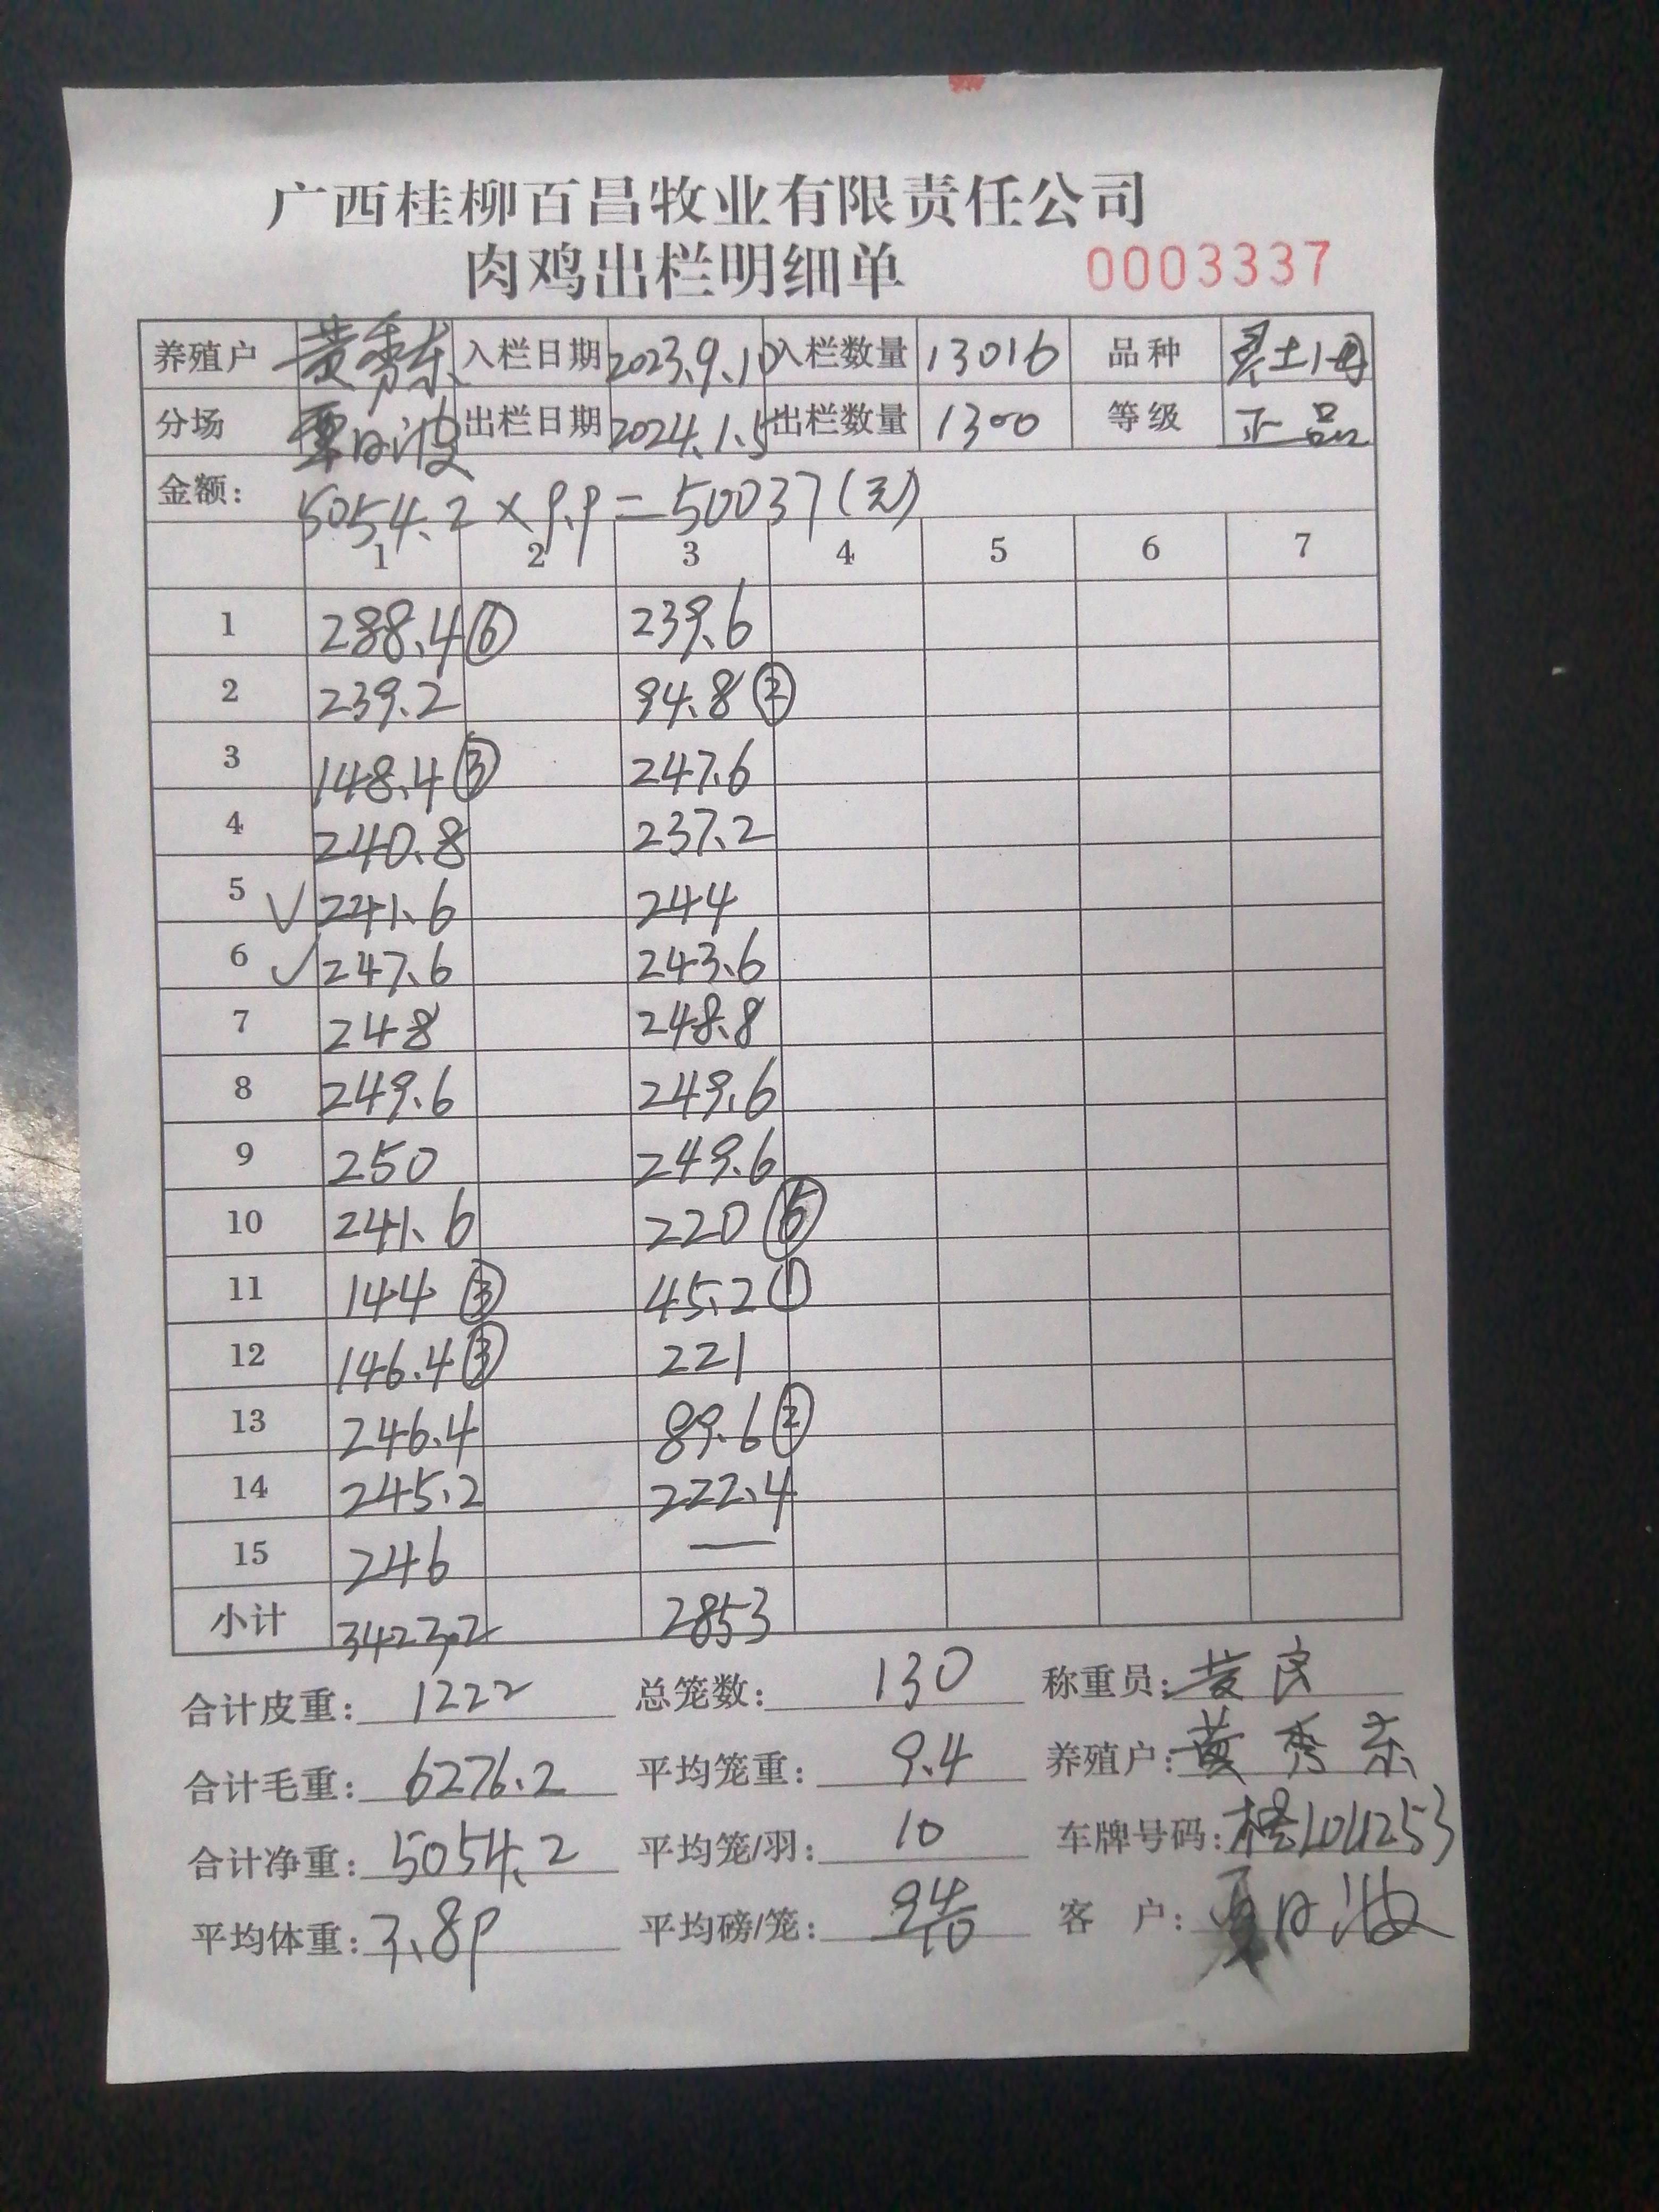 广西桂柳百昌牧业有限责任公司
肉鸡出栏明细单 0003337
养殖户 黄秀东 入栏日期 2023.9.10 入栏数量 13016 品种 灵土1母
分场 覃日波 出栏日期 2024.1.5 出栏数量 1300 等级 正品
金额： 5054.2×9.9=50037(元)
1 2 3 4 5 6 7
1 288.4⑥ 239.6
2 239.2 94.8②
3 148.4③ 247.6
4 240.8 237.2
5 √241.6 244
6 √247.6 243.6
7 248 248.8
8 249.6 249.6
9 250 249.6
10 241.6 220⑤
11 144③ 45.2①
12 146.4③ 221
13 246.4 89.6②
14 245.2 222.4
15 246 —
小计 3423.2 2853
合计皮重： 1222 总笼数： 130 称重员：
合计毛重： 6276.2 平均笼重： 9.4 养殖户： 黄秀东
合计净重： 5054.2 平均笼/羽： 10 车牌号码：
平均体重： 3.89 平均磅/笼： 客 户： 日波